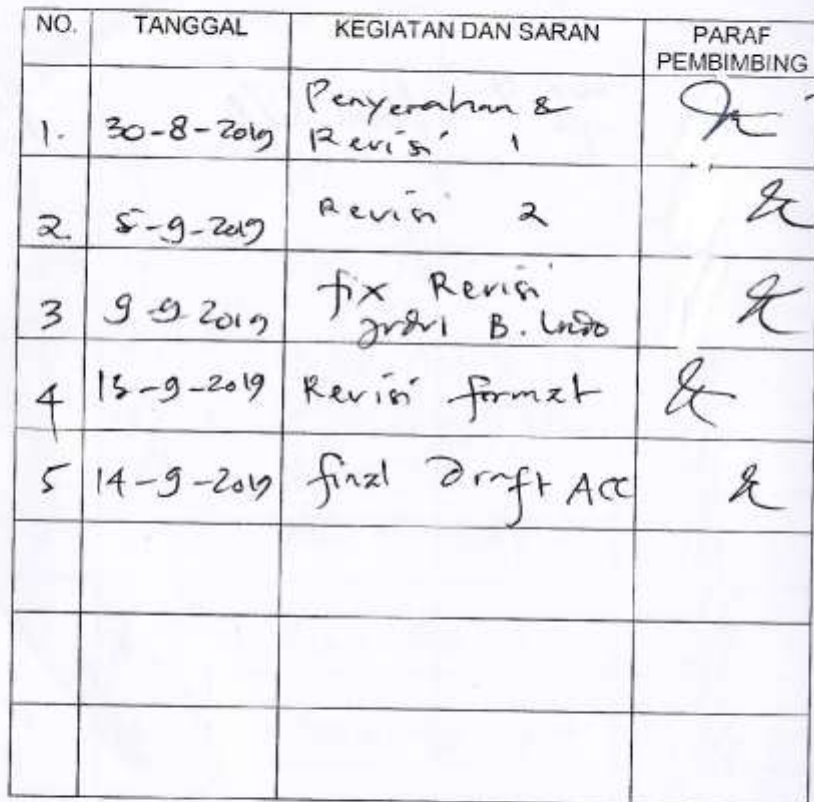 NO. TANGGAL KEGIATAN DAN SARAN PARAF
PEMBIMBING
1. 30-8-2019 Penyerahan &
Revisi 1
2. 5-9-2019 Revisi 2
3 9-9 2019 fix Revisi
B. Indo
4 13-9-2019 Revisi format
5 14-9-2019 final Draft ACC